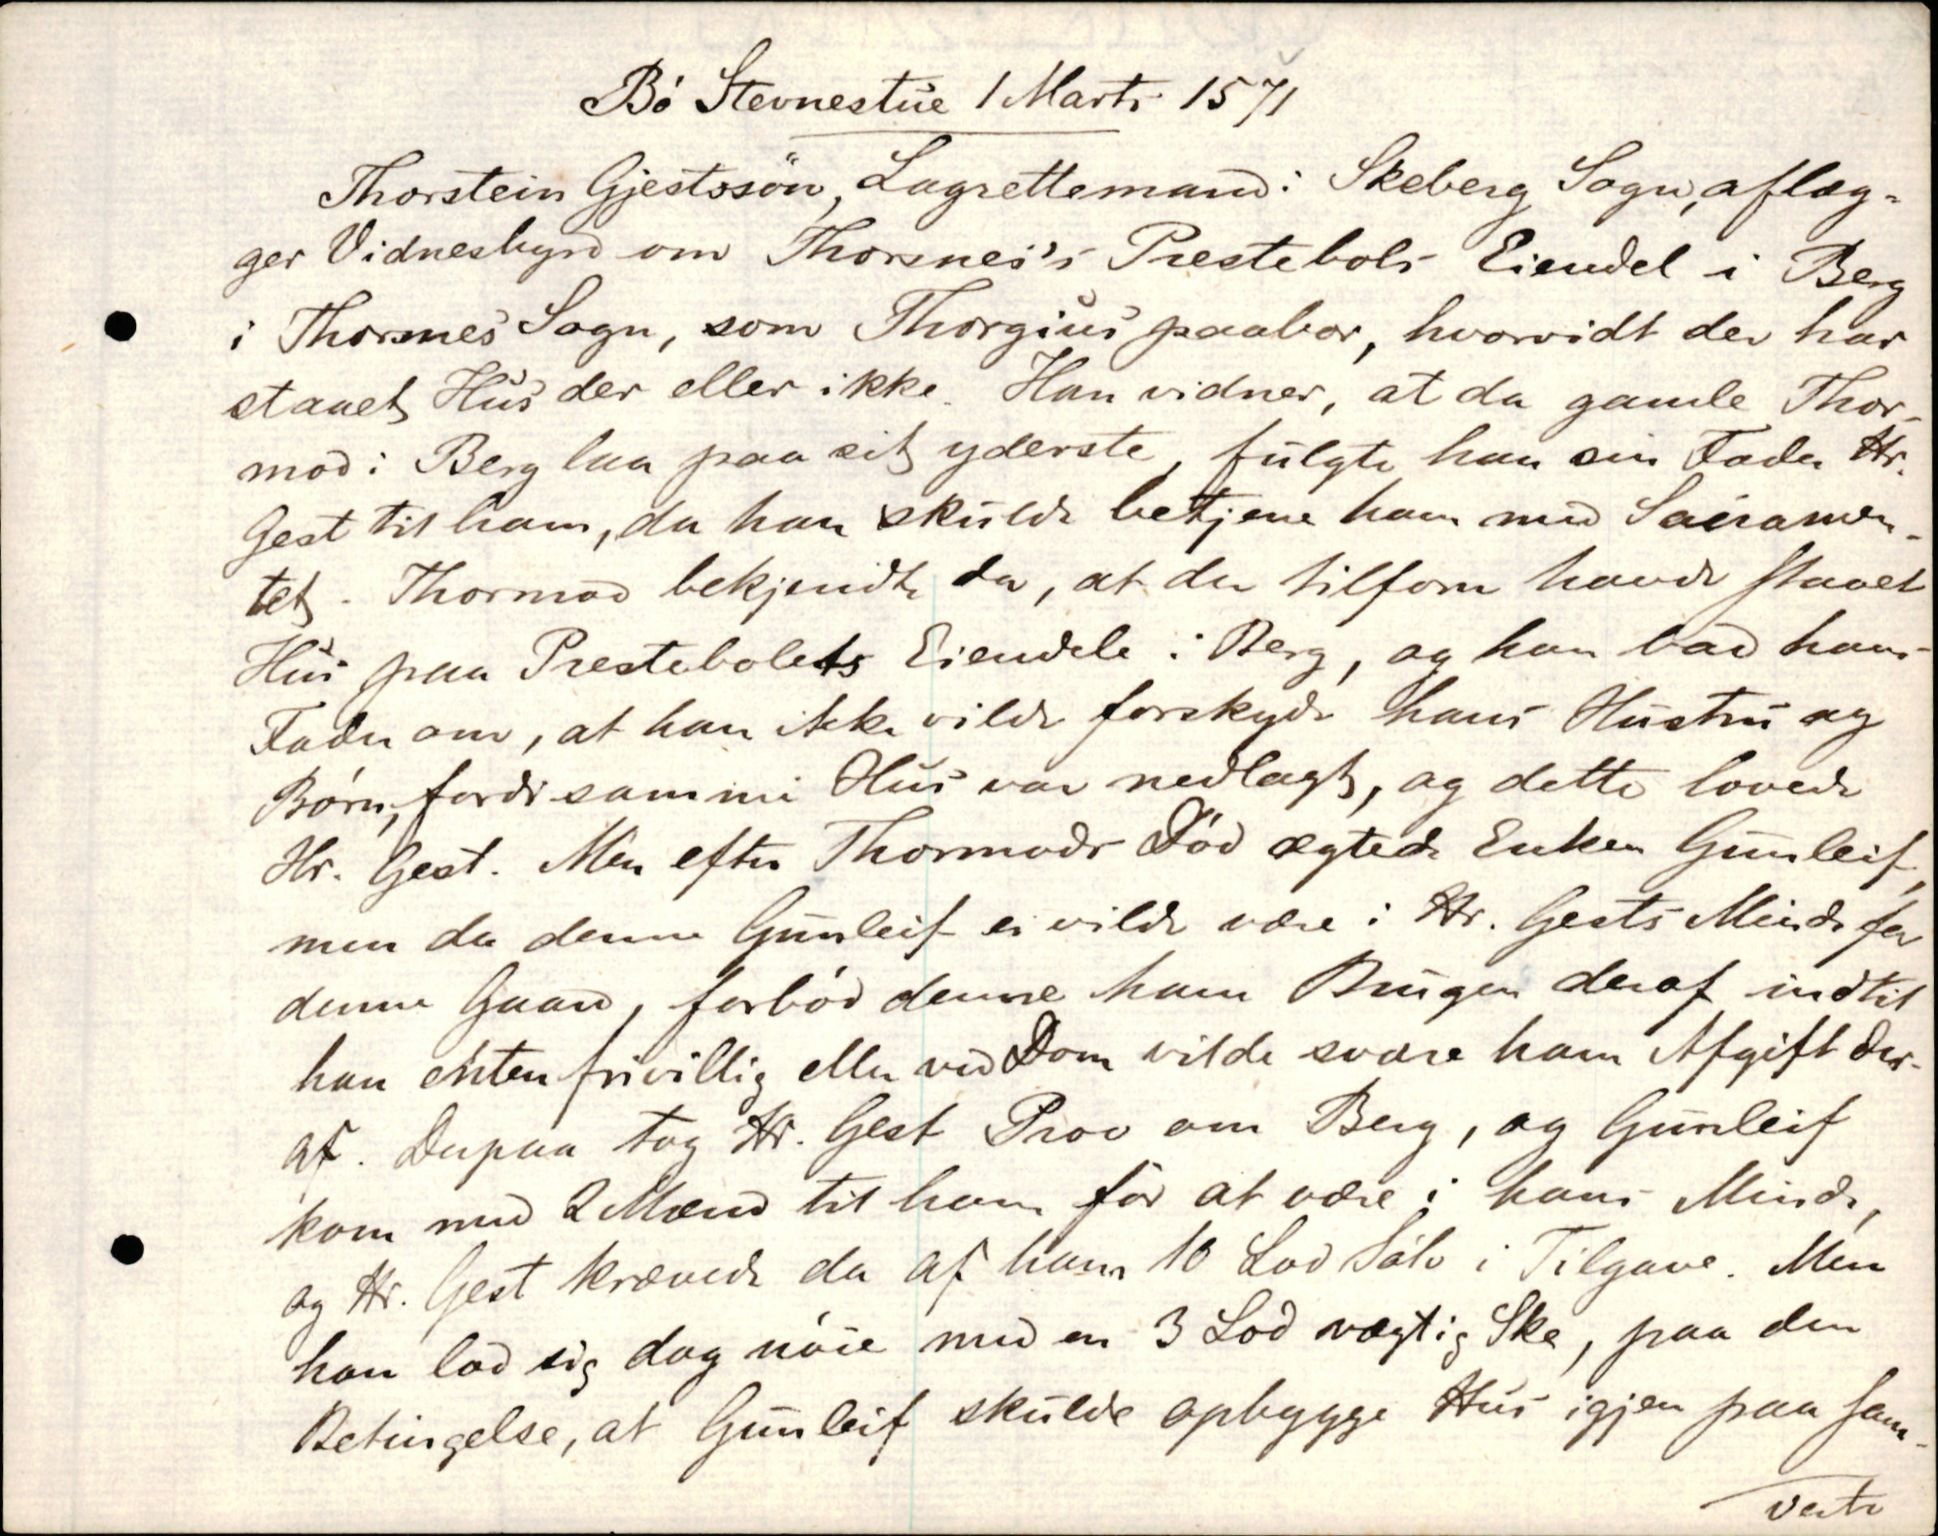 Bö Stevnestue 1 Marts 1571
Thorstein Gjestssön, Lagrettemand i Skeberg Sogn, aflæg-
ger Vidnesbyrd om Thorsnes's Prestebols Eiendel i Berg
i Thorsnes Sogn, som Thorgius paabor, hvorvidt der har
staaet Hus der eller ikke. Han vidner, at da gamle Thor-
mod i Berg laa paa sit yderste, fulgte han sin Fader Hr.
Gest til ham, da han skulde betjene ham med Sacramen-
tet. Thormod bekjendte da, at der tilforn havde staaet
Hus paa Prestebolets Eiendele i Berg, og han bad hans
Fader om, at han ikke vilde forskyde hans Hustru og
Börn, fordi samme Hus var nedlagt, og dette lovede
Hr. Gest. Men efter Thormods Död ægtede Enken Gunleif,
men da denne Gunleif ei vilde være i Hr. Gests Minde for
denne Gaard, forböd denne ham Brugen deraf indtil
han enten frivillig eller ved Dom vilde svare ham Afgift der-
af. Derpaa tog Hr. Gest Prov om Berg, og Gunleif
kom med 2 Mænd til ham for at være i hans Minde,
og Hr. Gest krævede da af ham 10 Lod Sölv i Tilgave. Men
han lod sig dog nöie med en 3 Lod vægtig Ske, paa den
Betingelse, at Gunleif skulde opbygge Hus igjen paa sam-
verte